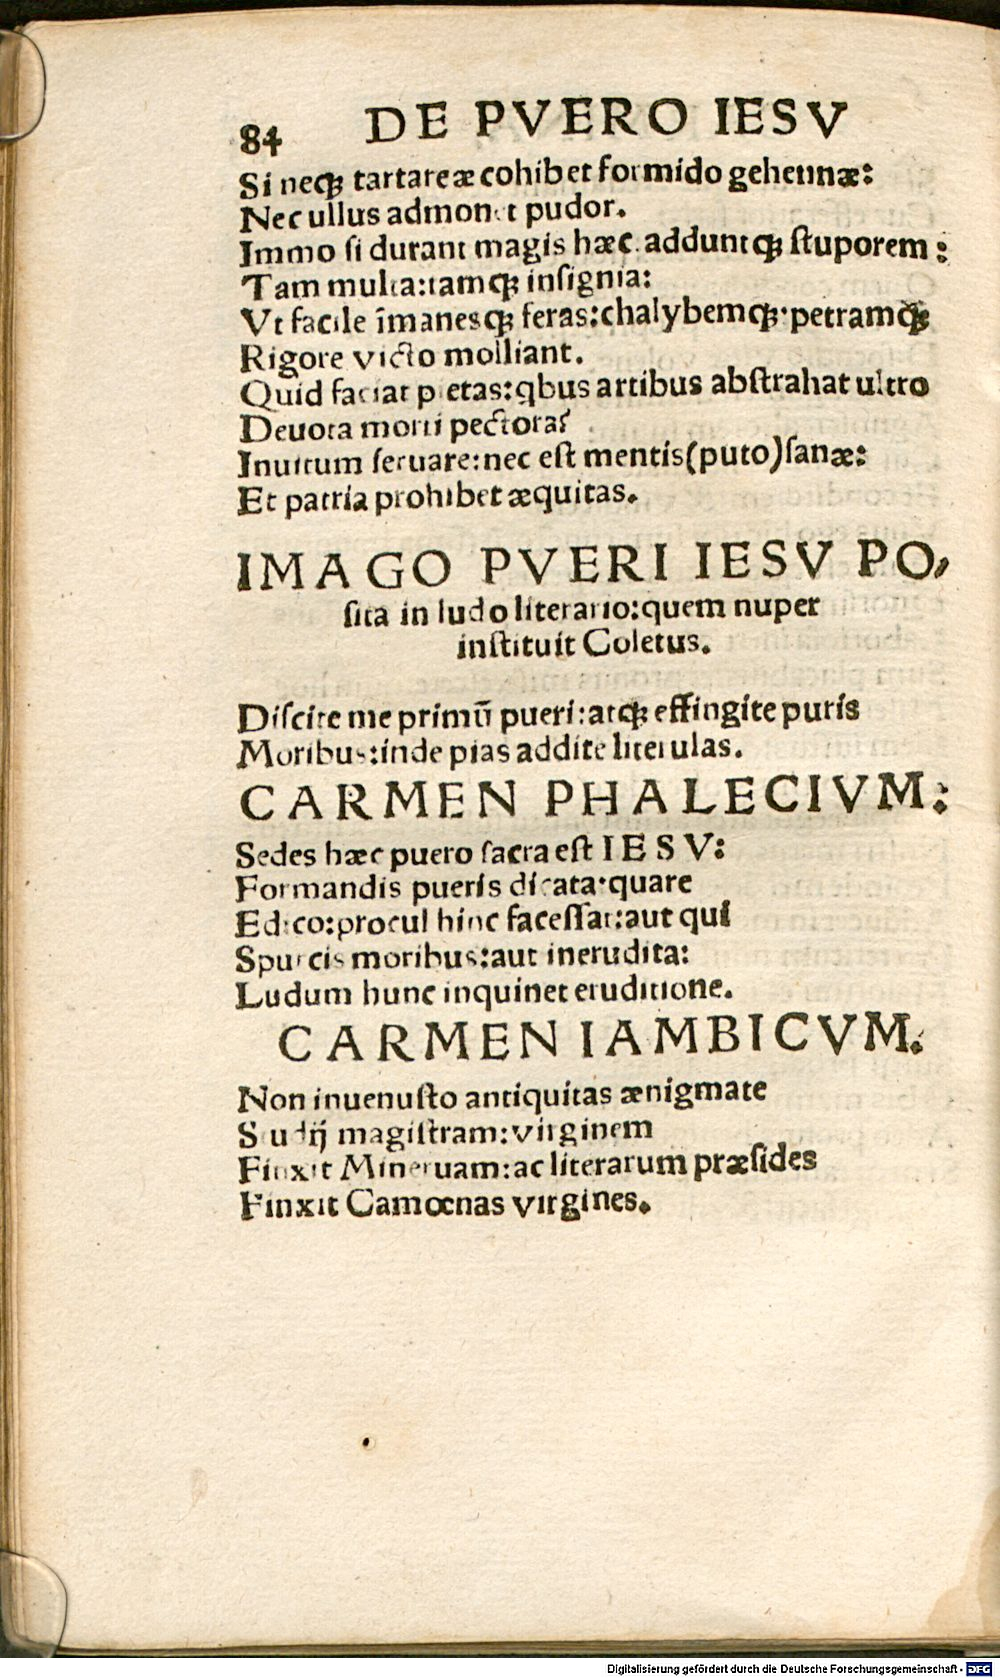 84 DE PVERO IESV
Si neqꝫ tartareæ cohibet formido gehennæ:
Nec ullus admonet pudor.
Immo si durant magis hæc. adduntqꝫ stuporem:
Tam multa:tamqꝫ insignia:
Vt facile īmanesqꝫ feras:chalybemqꝫ:petramqꝫ
Rigore victo molliant.
Quid faciat pietas:qbus artibus abstrahat ultro
Deuota morti pectora?
Inuitum seruare:nec est mentis(puto)sanæ:
Et patria prohibet æquitas.
IMAGO PVERI IESV PO,
sita in ludo literario:quem nuper
instituit Coletus.
Discite me primū pueri:atqꝫ effingite puris
Moribus:inde pias addite literulas.
CARMEN PHALECIVM:
Sedes hæc puero sacra est IESV:
Formandis pueris dicata:quare
Edico:procul hinc facessat:aut qui
Spurcis moribus:aut inerudita:
Ludum hunc inquinet eruditione.
CARMEN IAMBICVM.
Non inuenusto antiquitas ænigmate
Studij magistram:virginem
Finxit Mineruam:ac literarum præsides
Finxit Camœnas virgines.
Digitalisierung gefördert durch die Deutsche Forschungsgemeinschaft - DFG